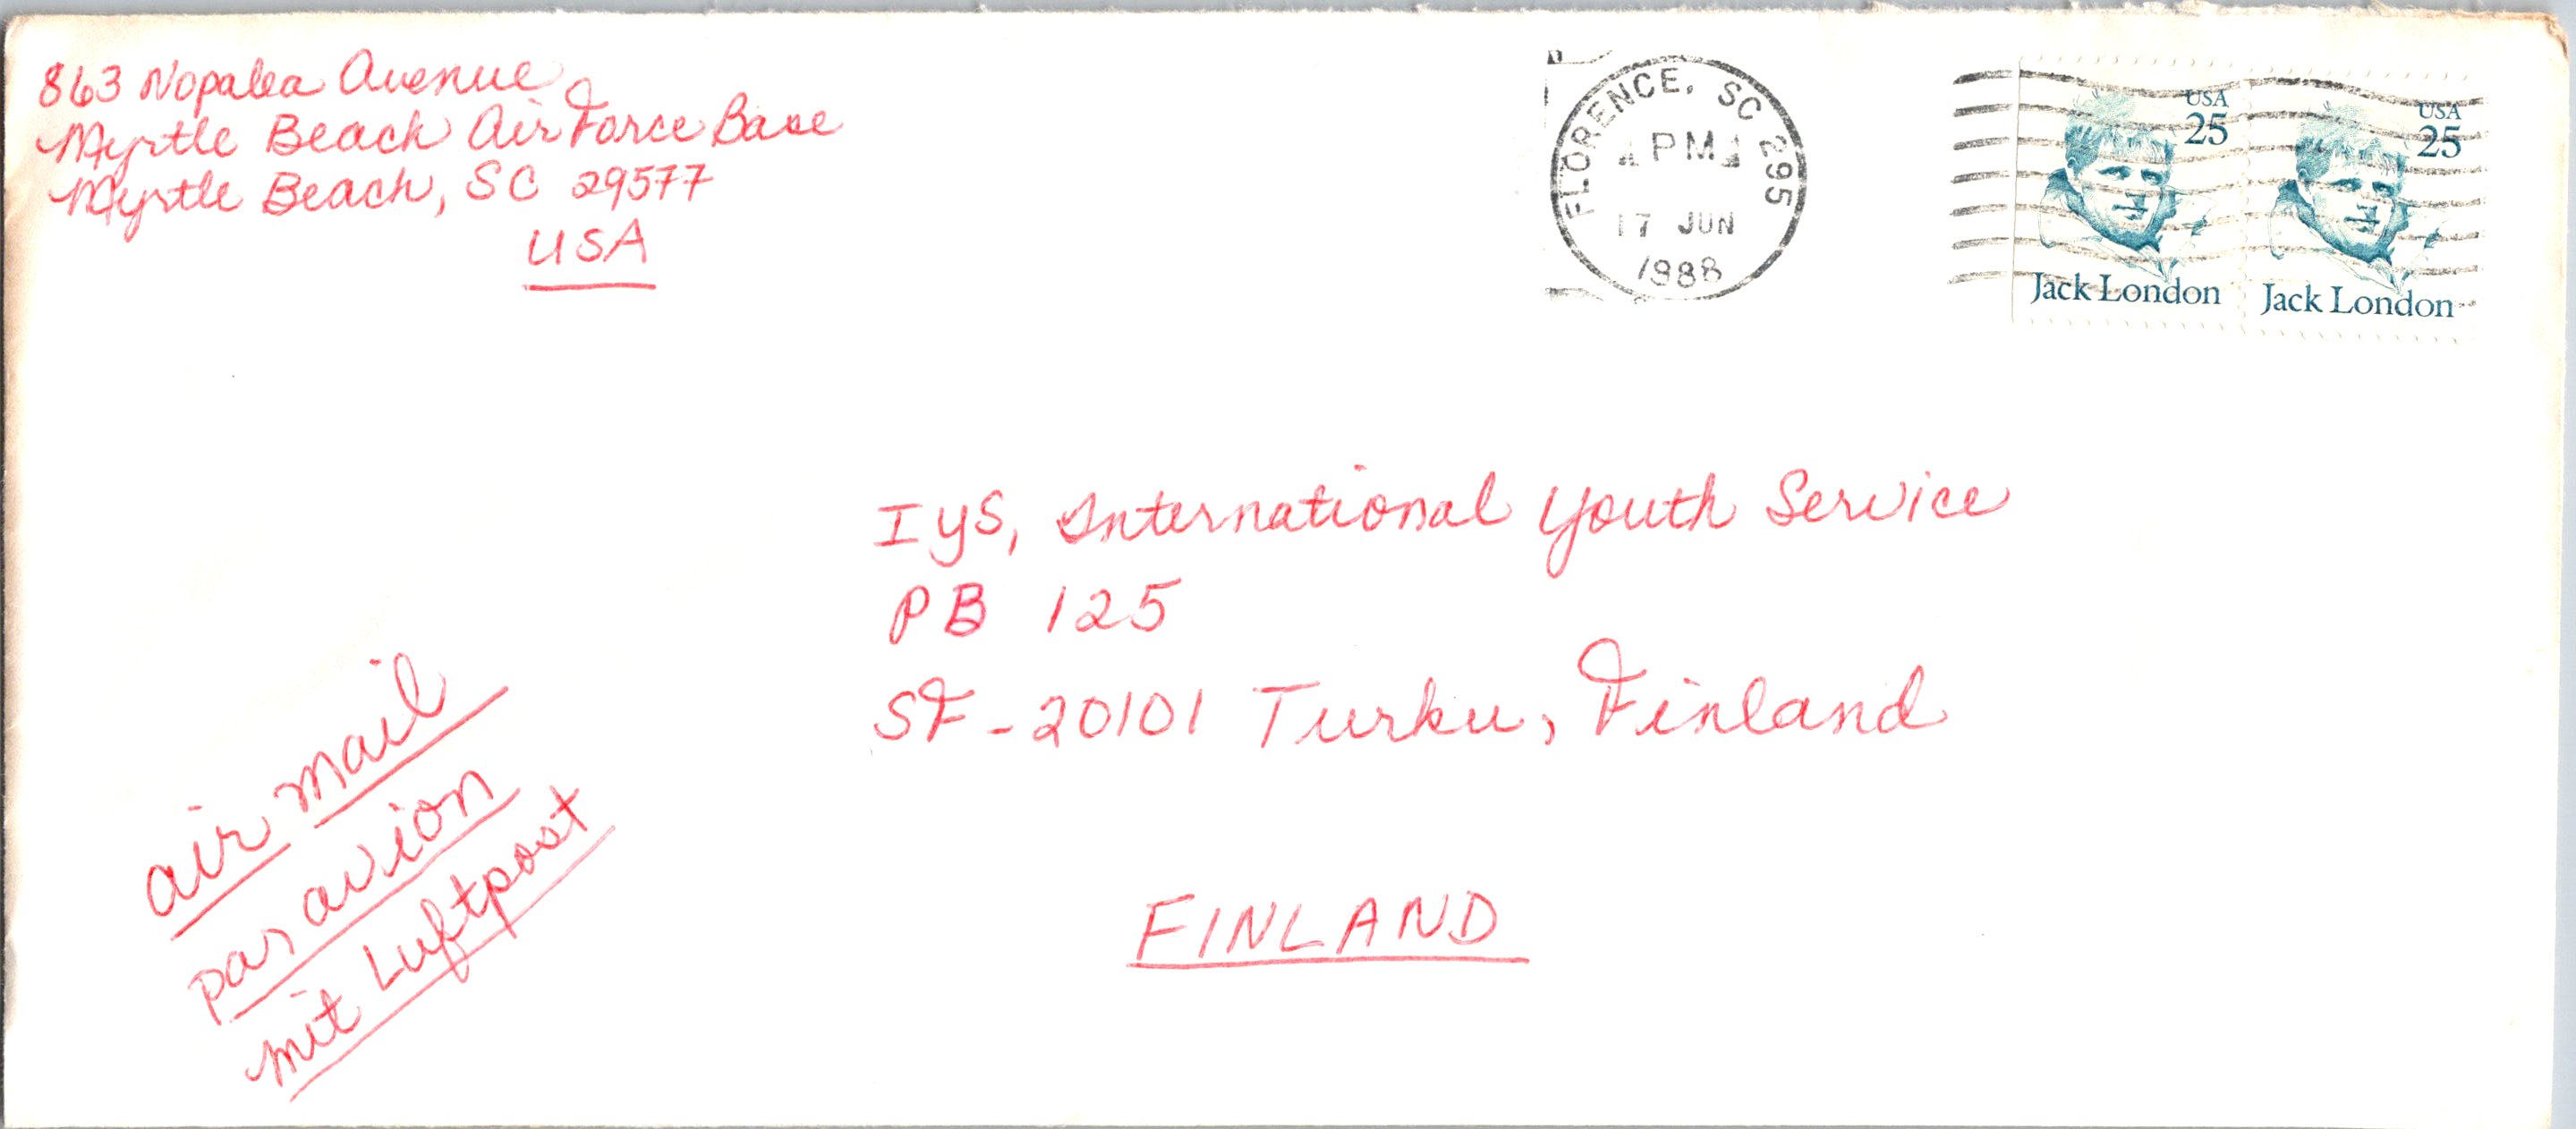 863 Nopalea Avenue
Myrtle Beach Air Force Base
Myrtle Beach, SC 29577
USA
FLORENCE, SC 295
PM
17 JUN
1988
USA
25
Jack London
USA
25
Jack London
IYS, International Youth Service
PB 125
SF-20101 Turku, Finland
FINLAND
air mail
par avion
mit Luftpost